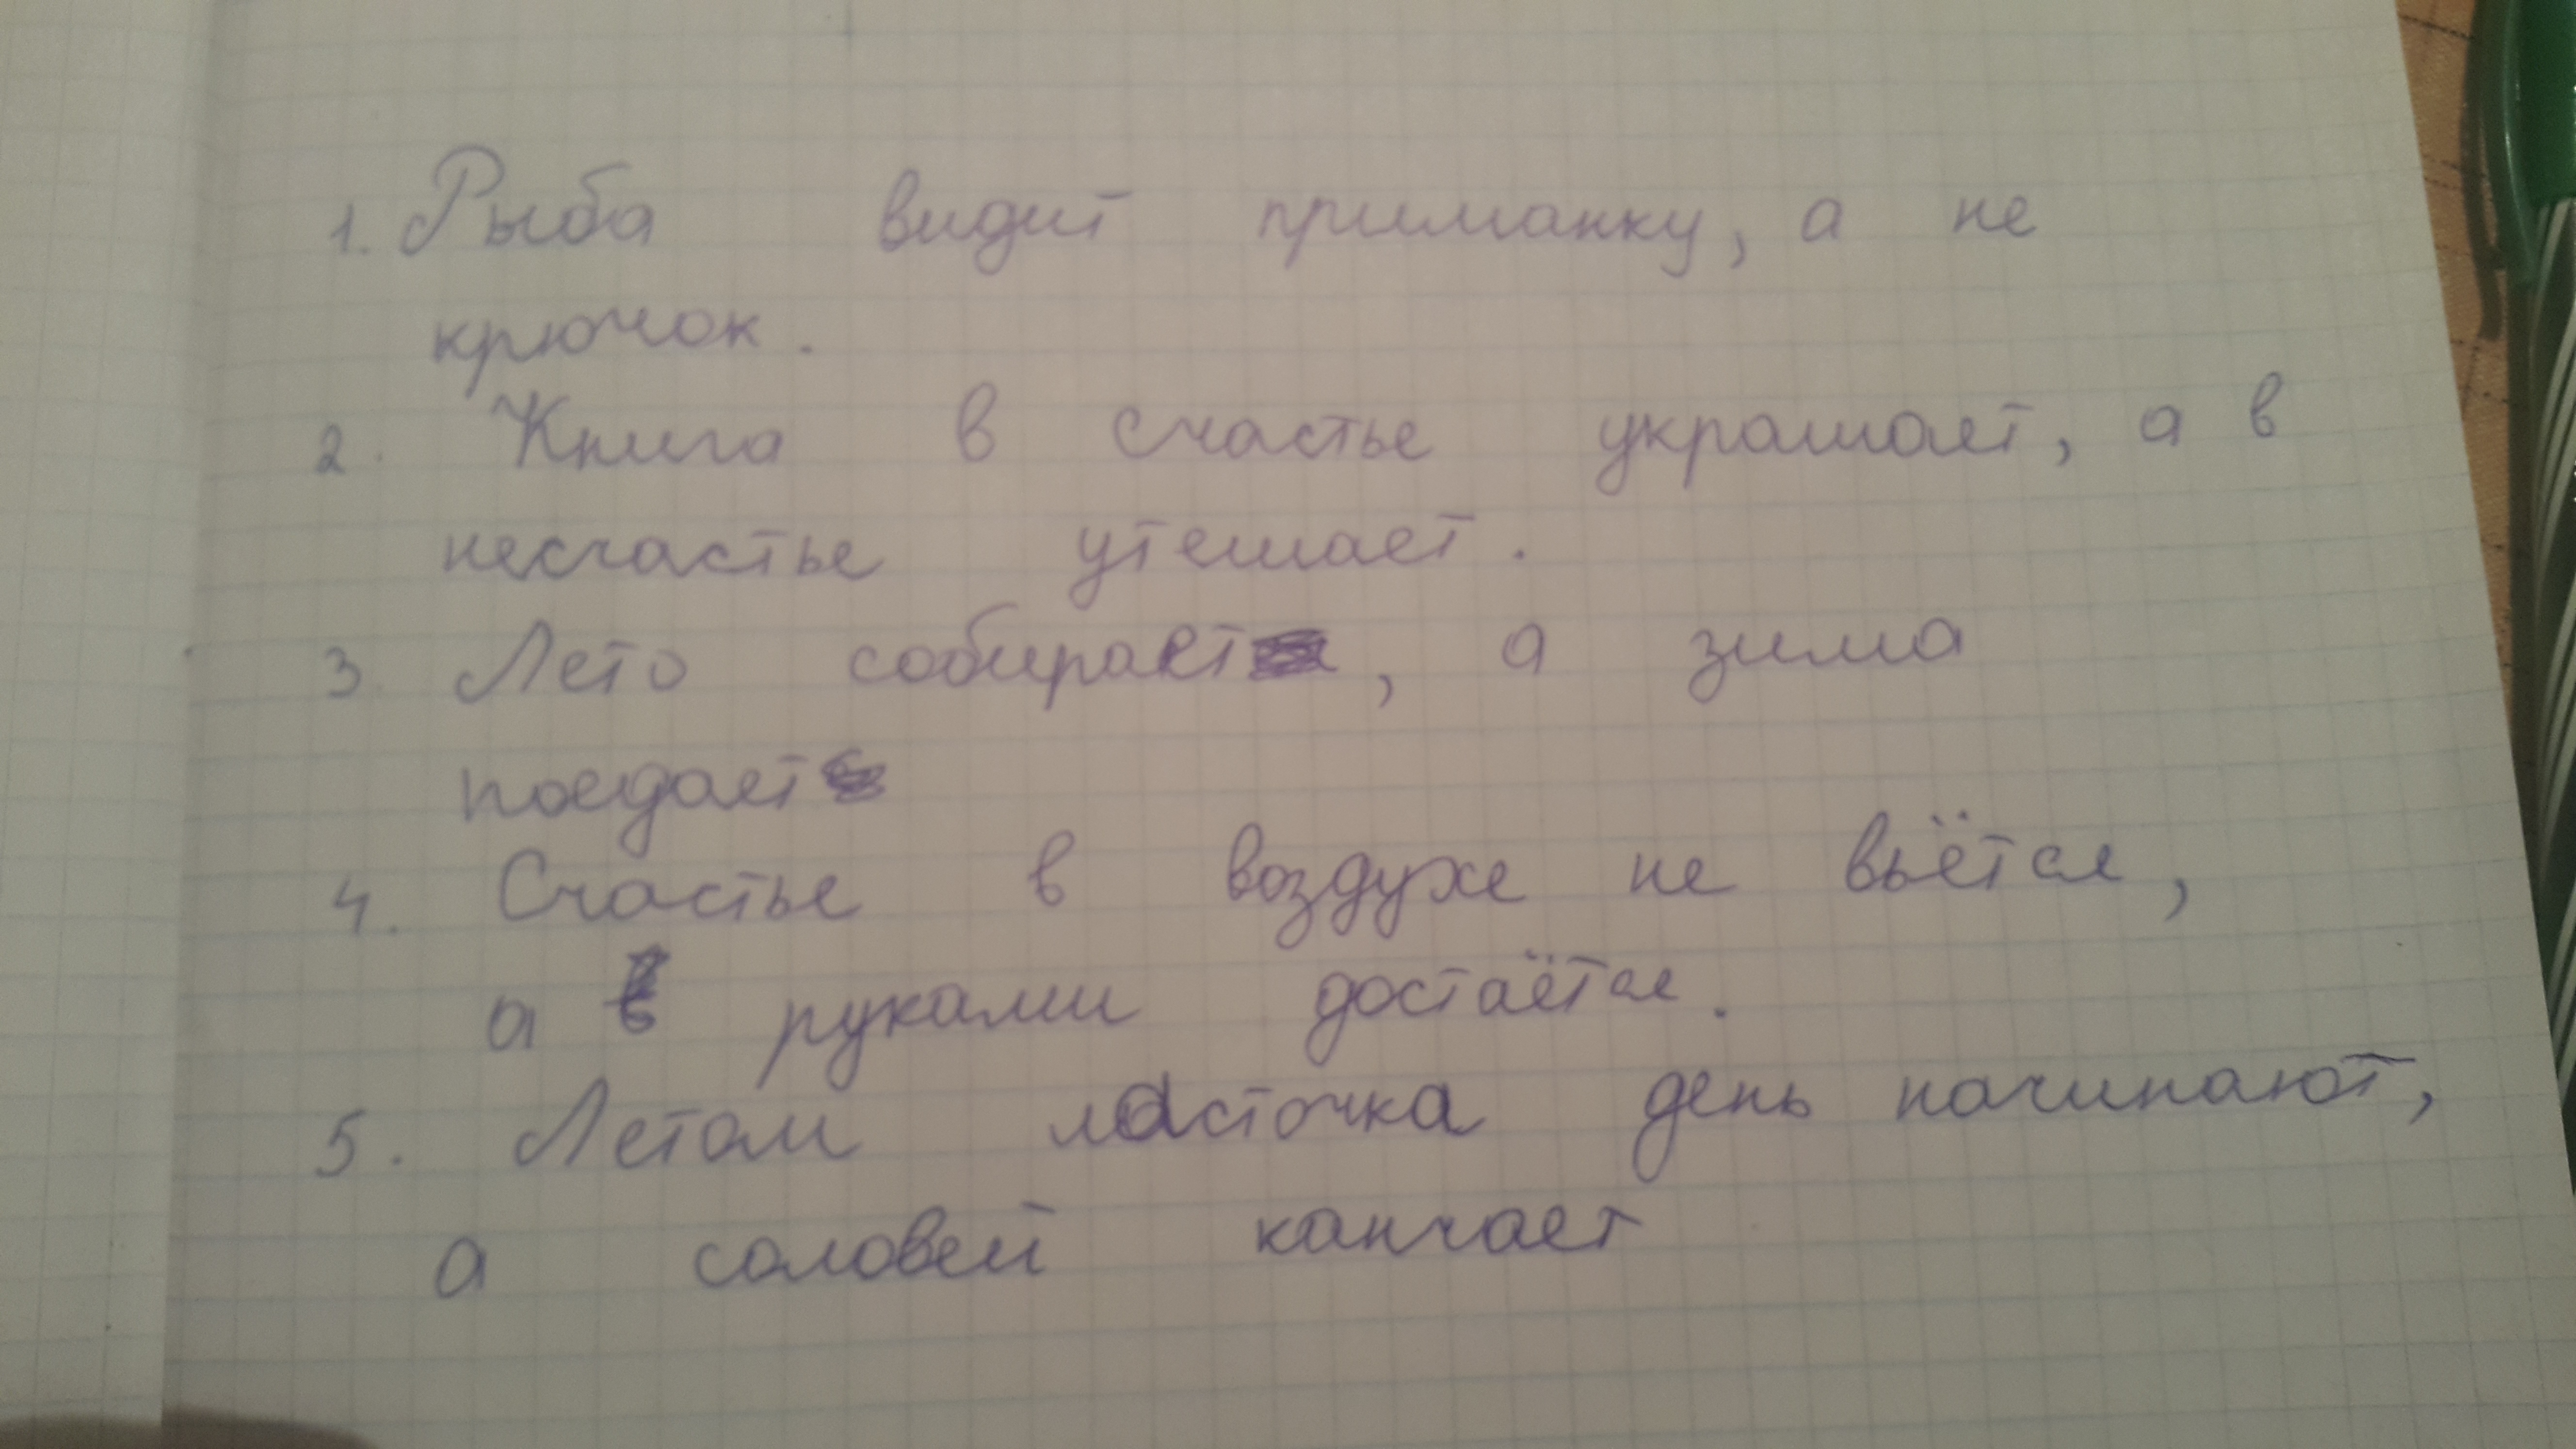 1. Рыба видит приманку, а не
крючок.
2. Книга в счастье украшает, а в
несчастье утешает.
3. Лето собирает, а зима
поедает
4. Счастье в воздухе не вьётся,
а руками достаётся.
5. Летом ласточка день начинают,
а соловей канчает